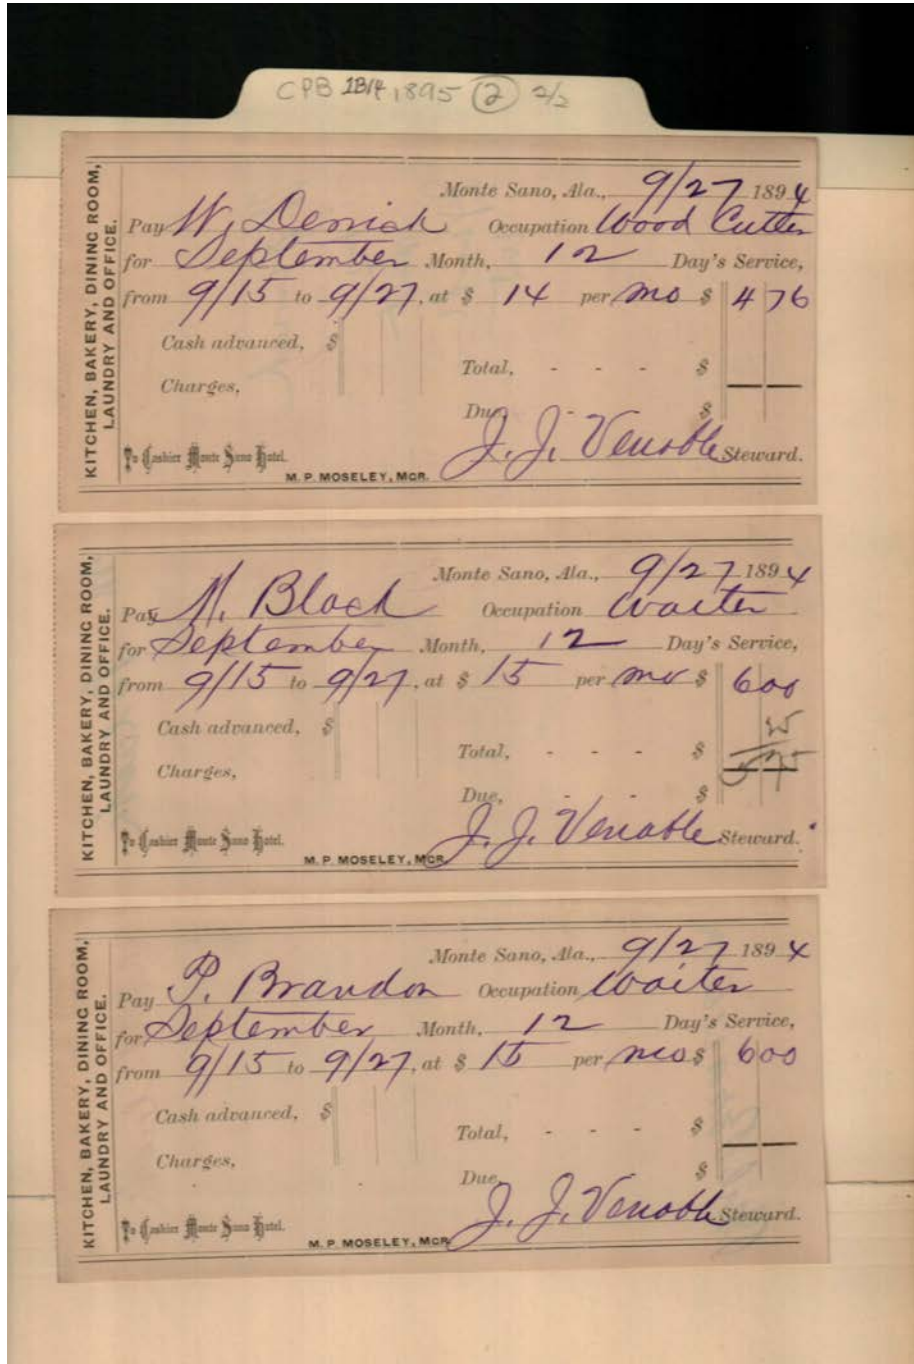 CPB 1B14 1895 2 2/2
KITCHEN, BAKERY, DINING ROOM,
LAUNDRY AND OFFICE.
Monte Sano, Ala., 9/27 1894
Pay W. Derrick Occupation Wood Cutter
for September Month, 12 Day's Service,
from 9/15 to 9/27, at $ 14 per mo $ 4 76
Cash advanced, $
Total, - - - $
Charges,
Due, - - $
To Cashier Monte Sano Hotel. J. J. Venable Steward.
M. P. MOSELEY, MGR.
KITCHEN, BAKERY, DINING ROOM,
LAUNDRY AND OFFICE.
Monte Sano, Ala., 9/27 1894
Pay M. Black Occupation Waiter
for September Month, 12 Day's Service,
from 9/15 to 9/27, at $ 15 per mo $ 6 00
Cash advanced, $ 25
Total, - - - $ 5 75
Charges,
Due, - - $
To Cashier Monte Sano Hotel. J. J. Venable Steward.
M. P. MOSELEY, MGR.
KITCHEN, BAKERY, DINING ROOM,
LAUNDRY AND OFFICE.
Monte Sano, Ala., 9/27 1894
Pay P. Brandon Occupation Waiter
for September Month, 12 Day's Service,
from 9/15 to 9/27, at $ 15 per mo $ 6 00
Cash advanced, $
Total, - - - $
Charges,
Due, $
To Cashier Monte Sano Hotel. J. J. Venable Steward.
M. P. MOSELEY, MGR.